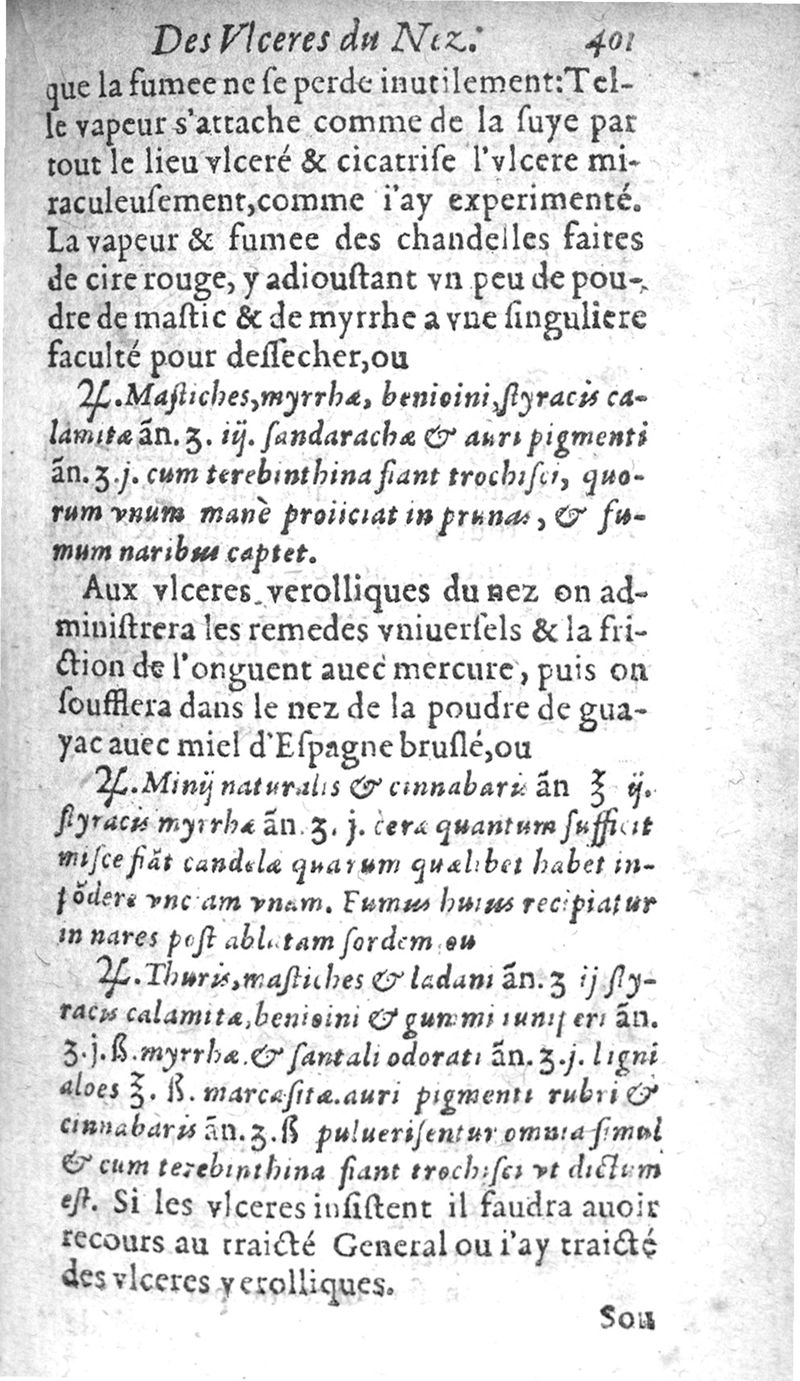 Des Vlceres du Nez. 401
que la fumee ne ſe perde inutilement:Tel-
le vapeur s'attache comme de la ſuye par
tout le lieu vlceré & cicatriſe l'vlcere mi-
raculeuſement,comme i'ay experimenté.
La vapeur & fumee des chandelles faites
de cire rouge, y adiouſtant vn peu de pou-
dre de maſtic & de myrrhe a vne ſinguliere
faculté pour deſſecher,ou
♃.Maſtiches,myrrhæ, benioini,ſtyracis ca-
lamitæ ãn. ʒ. iij. ſandarachæ & auri pigmenti
ãn. ʒ.j. cum terebinthina fiant trochiſci, quo-
rum vnum manè proiiciat in prunas, & fu-
mum naribus captet.
Aux vlceres verolliques du nez on ad-
miniſtrera les remedes vniuerſels & la fri-
ction de l'onguent auec mercure, puis on
ſoufflera dans le nez de la poudre de gua-
yac auec miel d'Eſpagne bruſlé,ou
♃.Minij naturalis & cinnabaris ãn ℥ ij.
ſtyracis myrrhæ ãn. ʒ. j. ceræ quantum ſufficit
miſce fiãt candelæ quarum quælibet habet in-
põdere vnciam vnam. Fumus huius recipiatur
in nares poſt ablutam ſordem ou
♃.Thuris,maſtiches & ladani ãn. ʒ ij ſty-
racis calamitæ,benioini & gummi iuniperi ãn.
ʒ.j.ß.myrrhæ.& ſantali odorati ãn. ʒ.j. ligni
aloes ℥. ß. marcaſitæ.auri pigmenti rubri &
cinnabaris ãn. ʒ.ß pulueriſentur omnia ſimul
& cum terebinthina fiant trochiſci vt dictum
eſt. Si les vlceres inſiſtent il faudra auoir
recours au traicté General ou i'ay traicté
des vlceres verolliques.
Sou